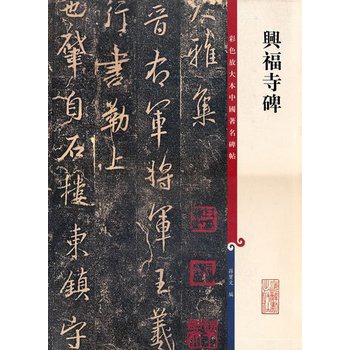 興福寺碑
彩色放大本中國著名碑帖
孫寶文 編
大雅集
晉右軍將軍王羲
行書勒上
也肇自石樓東鎮守